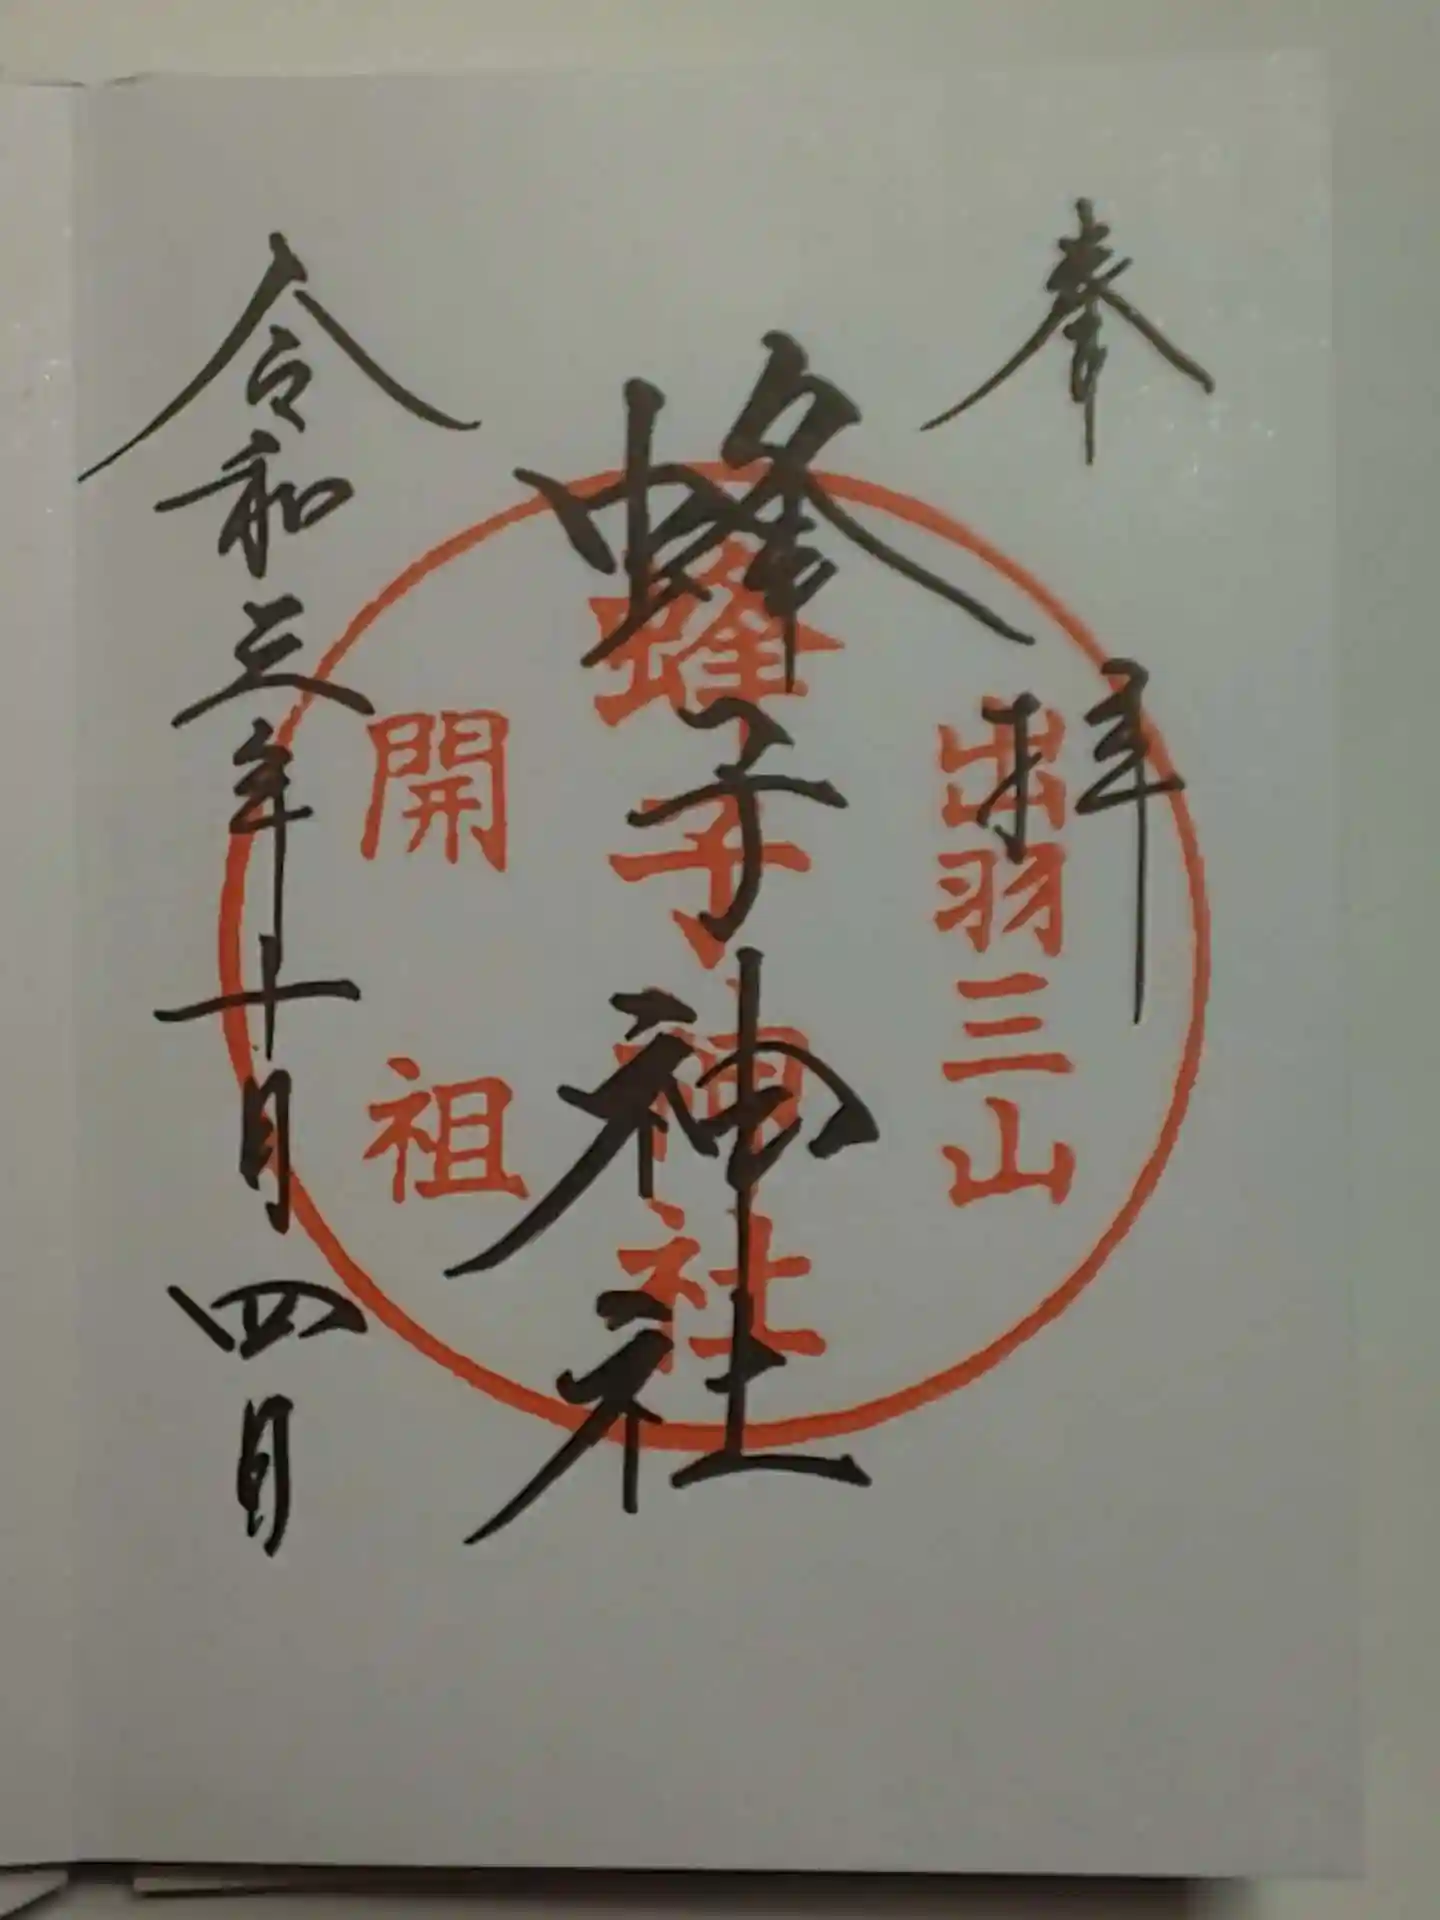 奉拝
出羽三山
蜂子神社
蜂子神社
開祖
令和三年十月四日